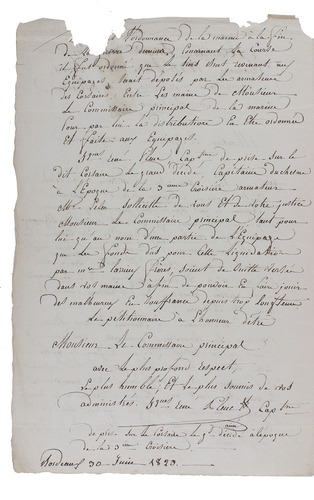 l'ordonnance de la marine à la fin
De la guerre dernière Concernant la Course
il fut ordonné que le tiers revenant aux
Equipages serait déposés par les armateurs
des Corsaires Entre Les mains de Monsieur
Le Commissaire principal de la marine
Pour par lui la distribution En Etre ordonnée
Et faite aux Equipages.
Cap tne de prise sur le
dit Corsaire Le grand Décidé, Capitaine duchesne
à L'Epoque de la 3 eme Croisière armateur
Mr. Sollicite de vous et de votre justice
Monsieur Le Commissaire principal tant pour
lui qu'au nom d'une partie de L'Equipage
que Les fonds dûs pour Cette Liquidation
par mr. soient de Suite Versés
dans vos mains à fin de pouvoir En faire jouir
des malheureux En Souffrance depuis trop longtems
Le petitionnaire à L'honneur d'être
Monsieur Le Commissaire principal
avec Le plus profond respect,
Le plus humble Et Le plus soumis de vos
administrés. Cap tne
de prise sur le Corsaire Le gd. décidé à l'époque
de la 3 eme Croisière
Bordeaux 30 Juin 1823.